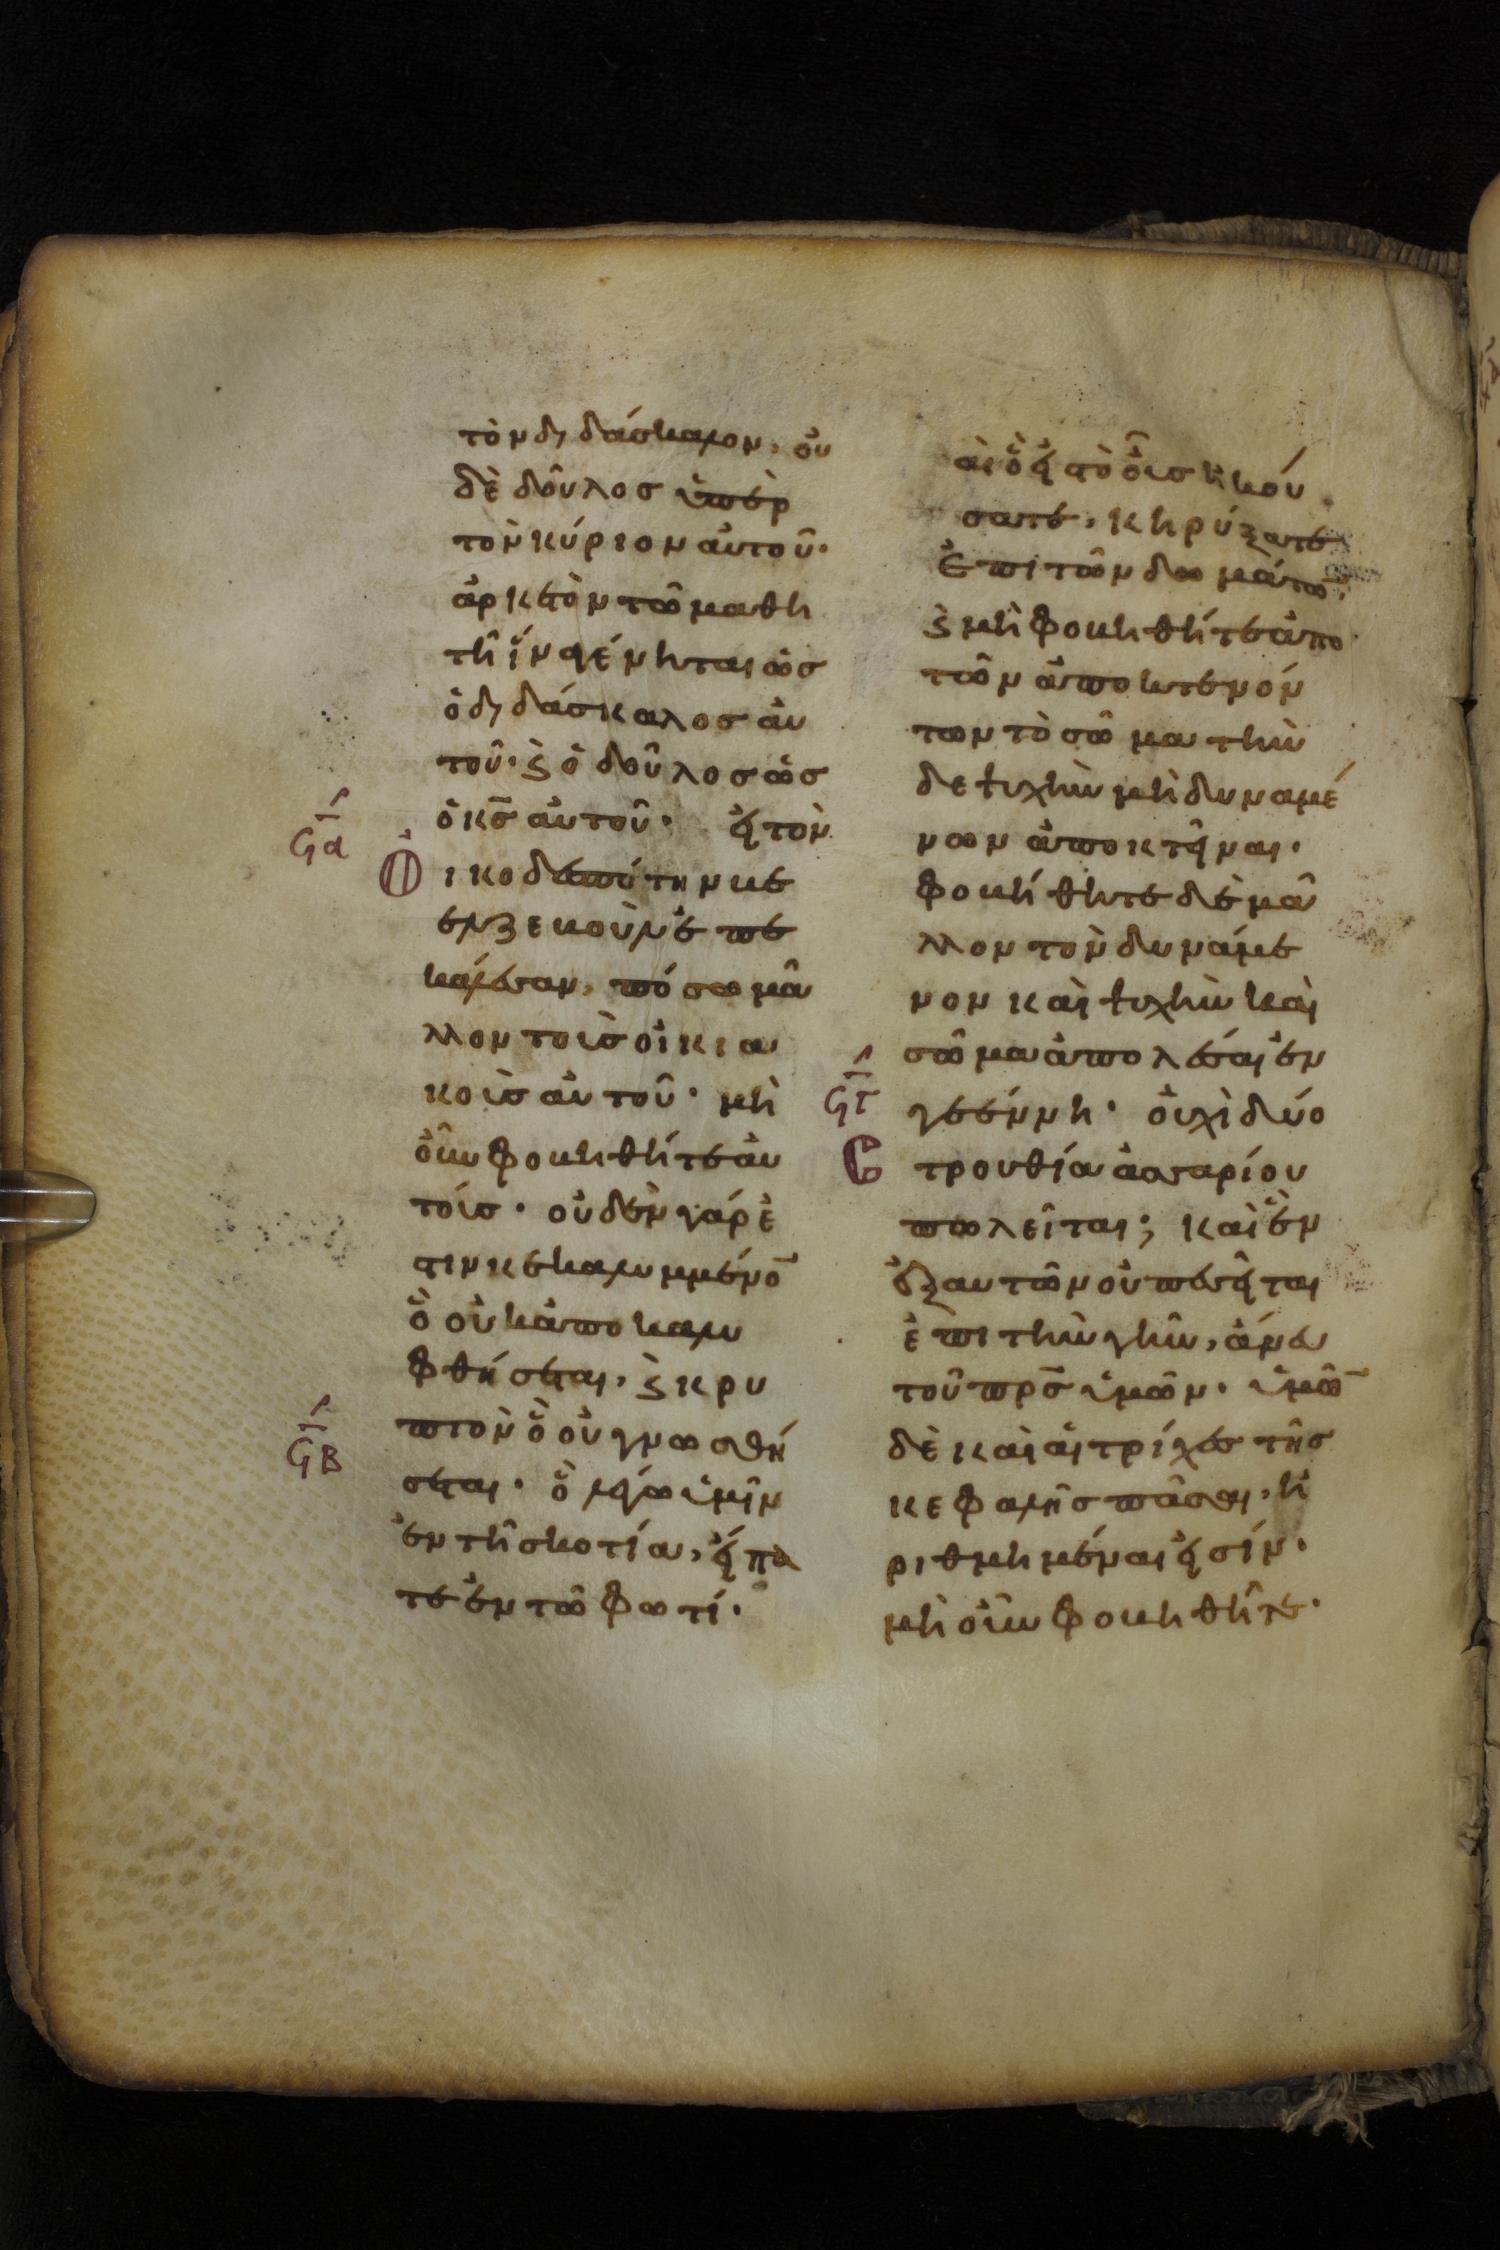 τὸν διδάσκαλον, οὐ
δὲ δοῦλοσ ὑπὲρ
τὸν κύριον αὐτοῦ·
ἀρκετὸν τῶ μαθη
τῆ ἵν γένηται ὡσ
ὁ διδάσκαλοσ αὐ
τοῦ· ϗ ὁ δοῦλοσ ὡσ
ὁ κ̅σ̅ αὐτοῦ· εἰ τὸν
ϟα
Οἰκοδεσπότην βε
ελζεβοὺλ ἐπε
κάλεσαν, πόσω μᾶ
λλον τοὺσ οἰκια
κοὺσ αὐτοῦ· μὴ
οὖν φοβηθῆτε αὐ
τούσ· οὐδὲν γάρ ἐ
στιν κεκαλυμμένο̅
ὃ οὐκ ἀποκαλυ
φθήσεται, ϗ κρυ
πτὸν ὃ οὐ γνωσθή
ϟβ
σεται· ὃ λέγω ὑμῖν
ἐν τῆ σκοτία, εἴπα
τε ἐν τῶ φωτί·
αὶ ὃ εἰσ τὸ οὖσ ἠκού
σατε, κηρύξατε
ἐπὶ τῶν δωμάτω̅,
ϗ μὴ φοβηθῆτε ἀπο
τῶν ἀποκτενόν
των τὸ σῶμα τὴν
δε ψυχὴν μὴ δυναμέ
νων ἀποκτεῖναι·
φοβήθητε δὲ μᾶ
λλον τὸν δυνάμε
νον καὶ ψυχὴν καὶ
σῶμα ἀπολέσαι ἐν
ϟγ
γεέννη· οὐχὶ δύο
Στρουθία ἀσσαρίου
πωλεῖται; καὶ ἓν
ἐξ αυτῶν οὐ πεσεῖται
ἐπὶ τὴν γῆν, ἄνευ
τοῦ π̅ρ̅σ̅ ὑμῶν· ὑμῶ̅
δὲ καὶ αἱ τρίχεσ τῆσ
κεφαλῆσ πᾶσαι, ἠ
ριθμημέναι εἰσίν·
μὴ οὖν φοβηθῆτε·